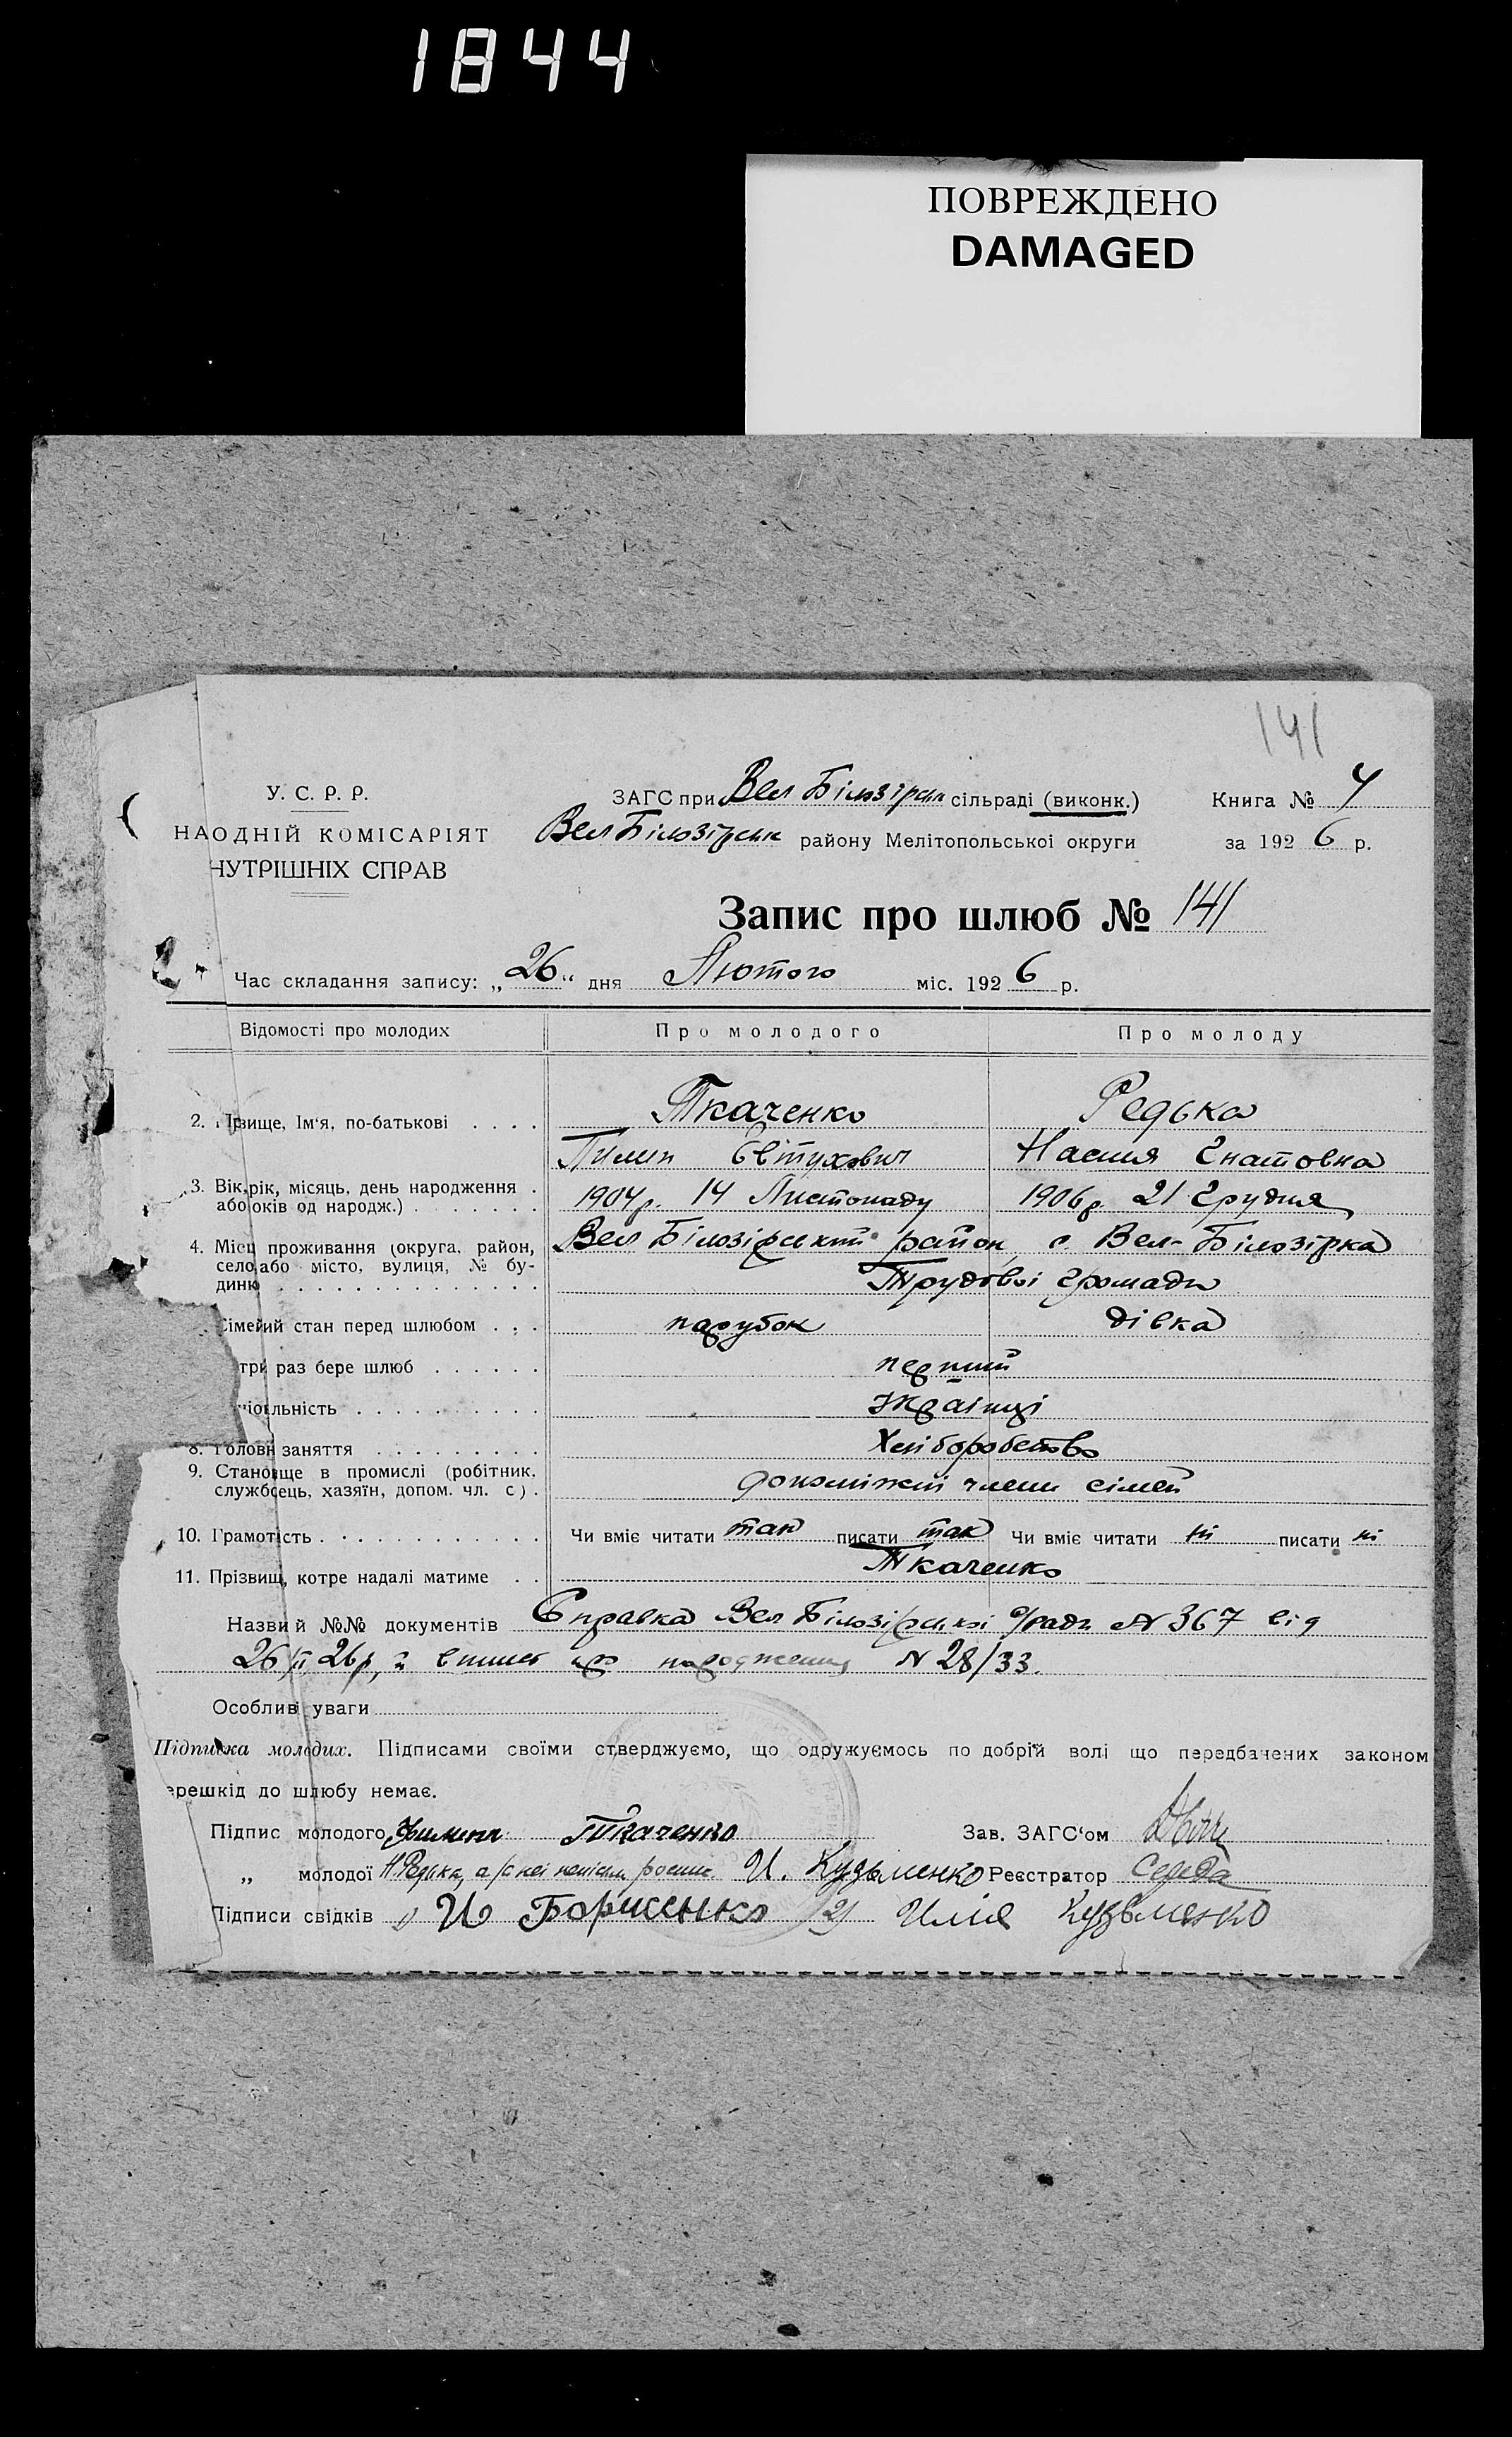 1844
ПОВРЕЖДЕНО
DAMAGED
141
У. С. Р. Р.
НАОДНІЙ КОМІСАРІЯТ
НУТРІШНІХ СПРАВ
ЗАГС при Вел Білозірськ сільраді (виконк.)
Вел Білозірськ району Мелітопольської округи
Книга № 4
за 192 6 р.
Запис про шлюб № 141
Час складання запису: „ 26 “ дня Лютого міс. 192 6 р.
Відомості про молодих
Про молодого
Про молоду
2. Прізвище, Ім‘я, по-батькові . . . . Ткаченко Редька
Пилип Євтухович Насшя Гнатовна
3. Вік, рік, місяць, день народження .
або оків од народж.) . . . . . . . 1904р. 14 Листопаду 1906р. 21 Грудня
4. Місц проживання (округа, район,
село або місто, вулиця, № бу-
динк . . . . . . . . . . . . . .
Вел Білозірський район, с. Вел-Білозірка
Трудової Громади
Сімейий стан перед шлюбом . . . парубок дівка
три раз бере шлюб . . . . . . перший
ціональність . . . . . . . . . . Українці
8. Головн заняття . . . . . . . . . Хліборобство
9. Становще в промислі (робітник,
службоець, хазяїн, допом. чл. с) .
допоміжні члени сімей
10. Грамотість . . . . . . . . . . . Чи вміє читати так писати так Чи вміє читати ні писати ні
11. Прізвищ, котре надалі матиме . . Ткаченко
Назви й №№ документів Справка Вел Білозірської с/ради № 367 від
26/II 26р, й про народження № 28/33.
Особливі уваги
Підписка молодих. Підписами своїми стверджуємо, що одружуємось по добрій волі що передбачених законом
ерешкід до шлюбу немає.
Підпис молодого Филипп Ткаченко
Зав. ЗАГС‘ом
„ молодої Н Редька, а за неі И. Кузьменко Реєстратор Середа
Підписи свідків 1) И Борисенко 2) Илія Кузьменко